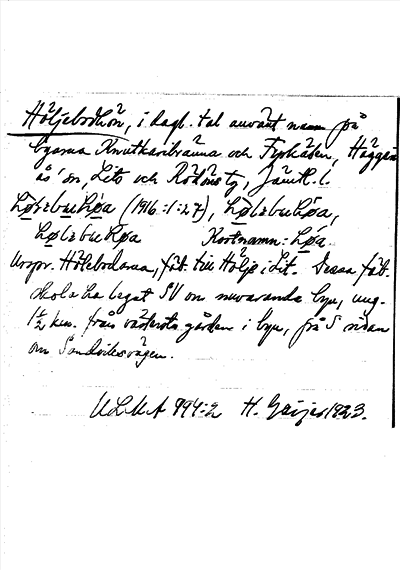 Höljebodhön, i dagl. tal använt namn på
byarna Knutkaribränna och Fyrkåsen, Häggen
ås'on, Lits och Rödöns tg, Jämtl. l.
(1916:1:2,7),
Kortnamn:
Urspr. Hölebodarna, fäb. till Hölje i Lit. Dessa fäb.
skola ha legat SV om nuvarande byn, ung.
1½ km. från västersta gården i byn, på S sidan
om Sandviksvägen.
ULMA 994:2 H. Geijer 1923.